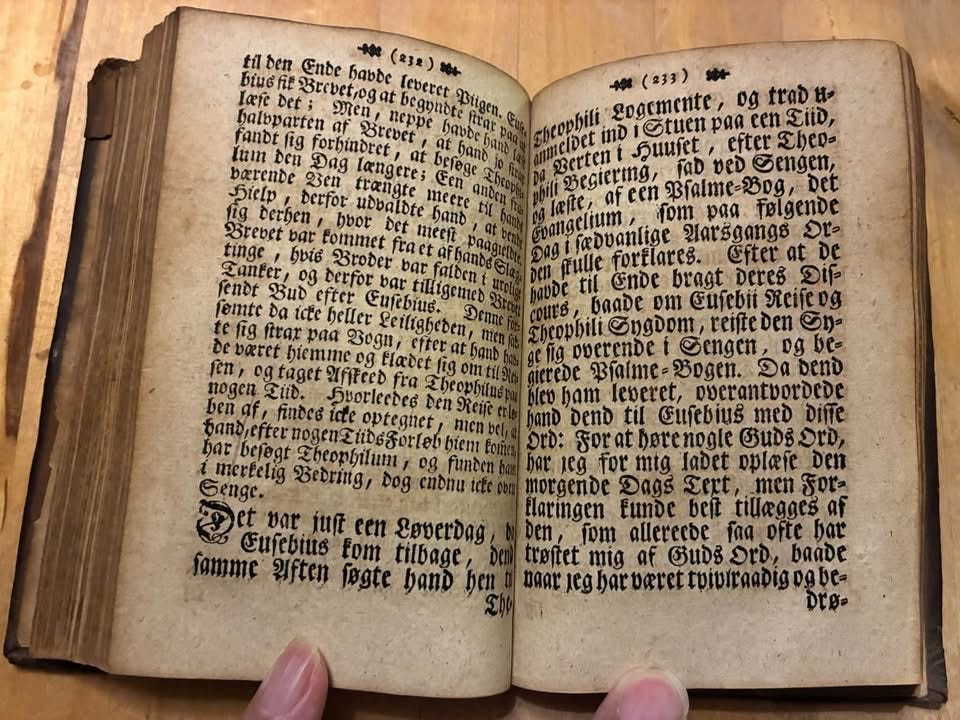 (232)
til den Ende havde leveret Piigen. Euse-
bius fik Brevet, og at begyndte strax paa at
læse det; Men, neppe havde hand læst
halvparten af Brevet, at hand jo strax
fandt sig forhindret, at besøge Theophi-
lum den Dag længere; Een anden fra-
værende Ven trængte meere til hands
Hielp, derfor udvaldte hand, at vende
sig derhen, hvor det meest paagieldte.
Brevet var kommet fra et af hands Slæg-
tinge, hvis Broder var falden i urolige
Tanker, og derfor var tilligemed Brevet
sendt Bud efter Eusebius. Denne for-
sømte da icke heller Leiligheden, men sad-
te sig strax paa Vogn, efter at hand hav-
de været hiemme og klædet sig om til Rei-
sen, og taget Afskeed fra Theophilus paa
nogen Tiid. Hvorleedes den Reise er løb-
ben af, findes icke optegnet, men vel, at
hand, efter nogen Tiids Forløb hiem kommen,
har besøgt Theophilum, og funden ham
i merkelig Bedring, dog endnu icke oven
Senge.
Det var just een Løverdag, da
Eusebius kom tilbage, dend
samme Aften søgte hand hen til
The-
(233)
Theophili Logemente, og trad u-
anmeldet ind i Stuen paa een Tiid,
da Verten i Huuset, efter Theo-
phili Begiering, sad ved Sengen,
og læste, af een Psalme-Bog, det
Evangelium, som paa følgende
Dag i sædvanlige Aarsgangs Or-
den skulle forklares. Efter at de
havde til Ende bragt deres Dis-
cours, baade om Eusebii Reise og
Theophili Sygdom, reiste den Sy-
ge sig overende i Sengen, og be-
gierede Psalme-Bogen. Da dend
blev ham leveret, overantvordede
hand dend til Eusebius med disse
Ord: For at høre nogle Guds Ord,
har jeg for mig ladet oplæse den
morgende Dags Text, men For-
klaringen kunde best tillægges af
den, som allereede saa ofte har
trøstet mig af Guds Ord, baade
naar jeg har været tvivlraadig og be-
drø-